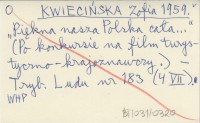 O. KWIECIŃSKA Zofia 1959.
"Piękna nasza Polska cała..."
(Po konkursie na film turys-
tyczno-krajoznawczy.) -
Tryb. Ludu nr 183 (4 VII).
WHP
BJ/031/0320